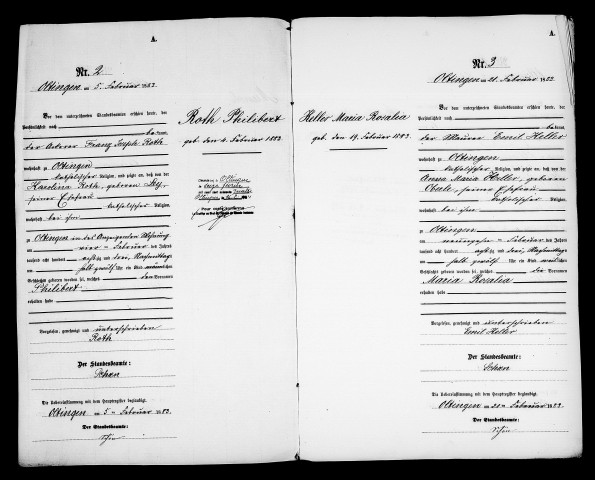 A.
Nr. 2
Oltingen am 5. Februar 1883.
Vor dem unterzeichneten Standesbeamten erschien heute, der
Persönlichkeit nach
kannt,
der Ackerer Franz Joseph Roth
wohnhaft zu Oltingen
katholischer Religion, und zeigte an, daß von der
Karolina Roth, geborenen
seiner Ehefrau
katholischer Religion,
wohnhaft bei ihm
zu Oltingen in des Anzeigenden Wohnung
am vier ten Februar des Jahres
tausend acht hundert achtzig und drei, Nachmittags
um halb zwölf Uhr ein Kind männlichen
Geschlecht geboren worden sei, welches den Vornamen
Philibert
erhalten habe
Vorgelesen, genehmigt und unterschrieben
Roth
Der Standesbeamte:
Schan
Die Uebereinstimmung mit dem Hauptregister beglaubigt.
Oltingen am 5 ten Februar 1883.
Der Standesbeamte:
Roth Philibert
geb. den 4. Februar 1883
Keller Maria Rosalia
geb. den 19. Februar 1883
A.
Nr. 3
Oltingen am 20. Februar 1883.
Vor dem unterzeichneten Standesbeamten erschien heute, der
Persönlichkeit nach
kannt,
der Maurer Emil Keller
wohnhaft zu Oltingen
katholischer Religion, und zeigte an, daß von der
Anna Maria Keller, geborenen
Oberle, seiner Ehefrau
katholischer Religion,
wohnhaft bei ihm
zu Oltingen
am neunzehn ten Februar des Jahres
tausend acht hundert achtzig und drei, Nachmittags
um halb zwölf Uhr ein Kind weiblichen
Geschlecht geboren worden sei, welches die Vornamen
Maria Rosalia
erhalten habe
Vorgelesen, genehmigt und unterschrieben
Emil Keller
Der Standesbeamte:
Schan
Die Uebereinstimmung mit dem Hauptregister beglaubigt.
Oltingen am 20 ten Februar 1883.
Der Standesbeamte: